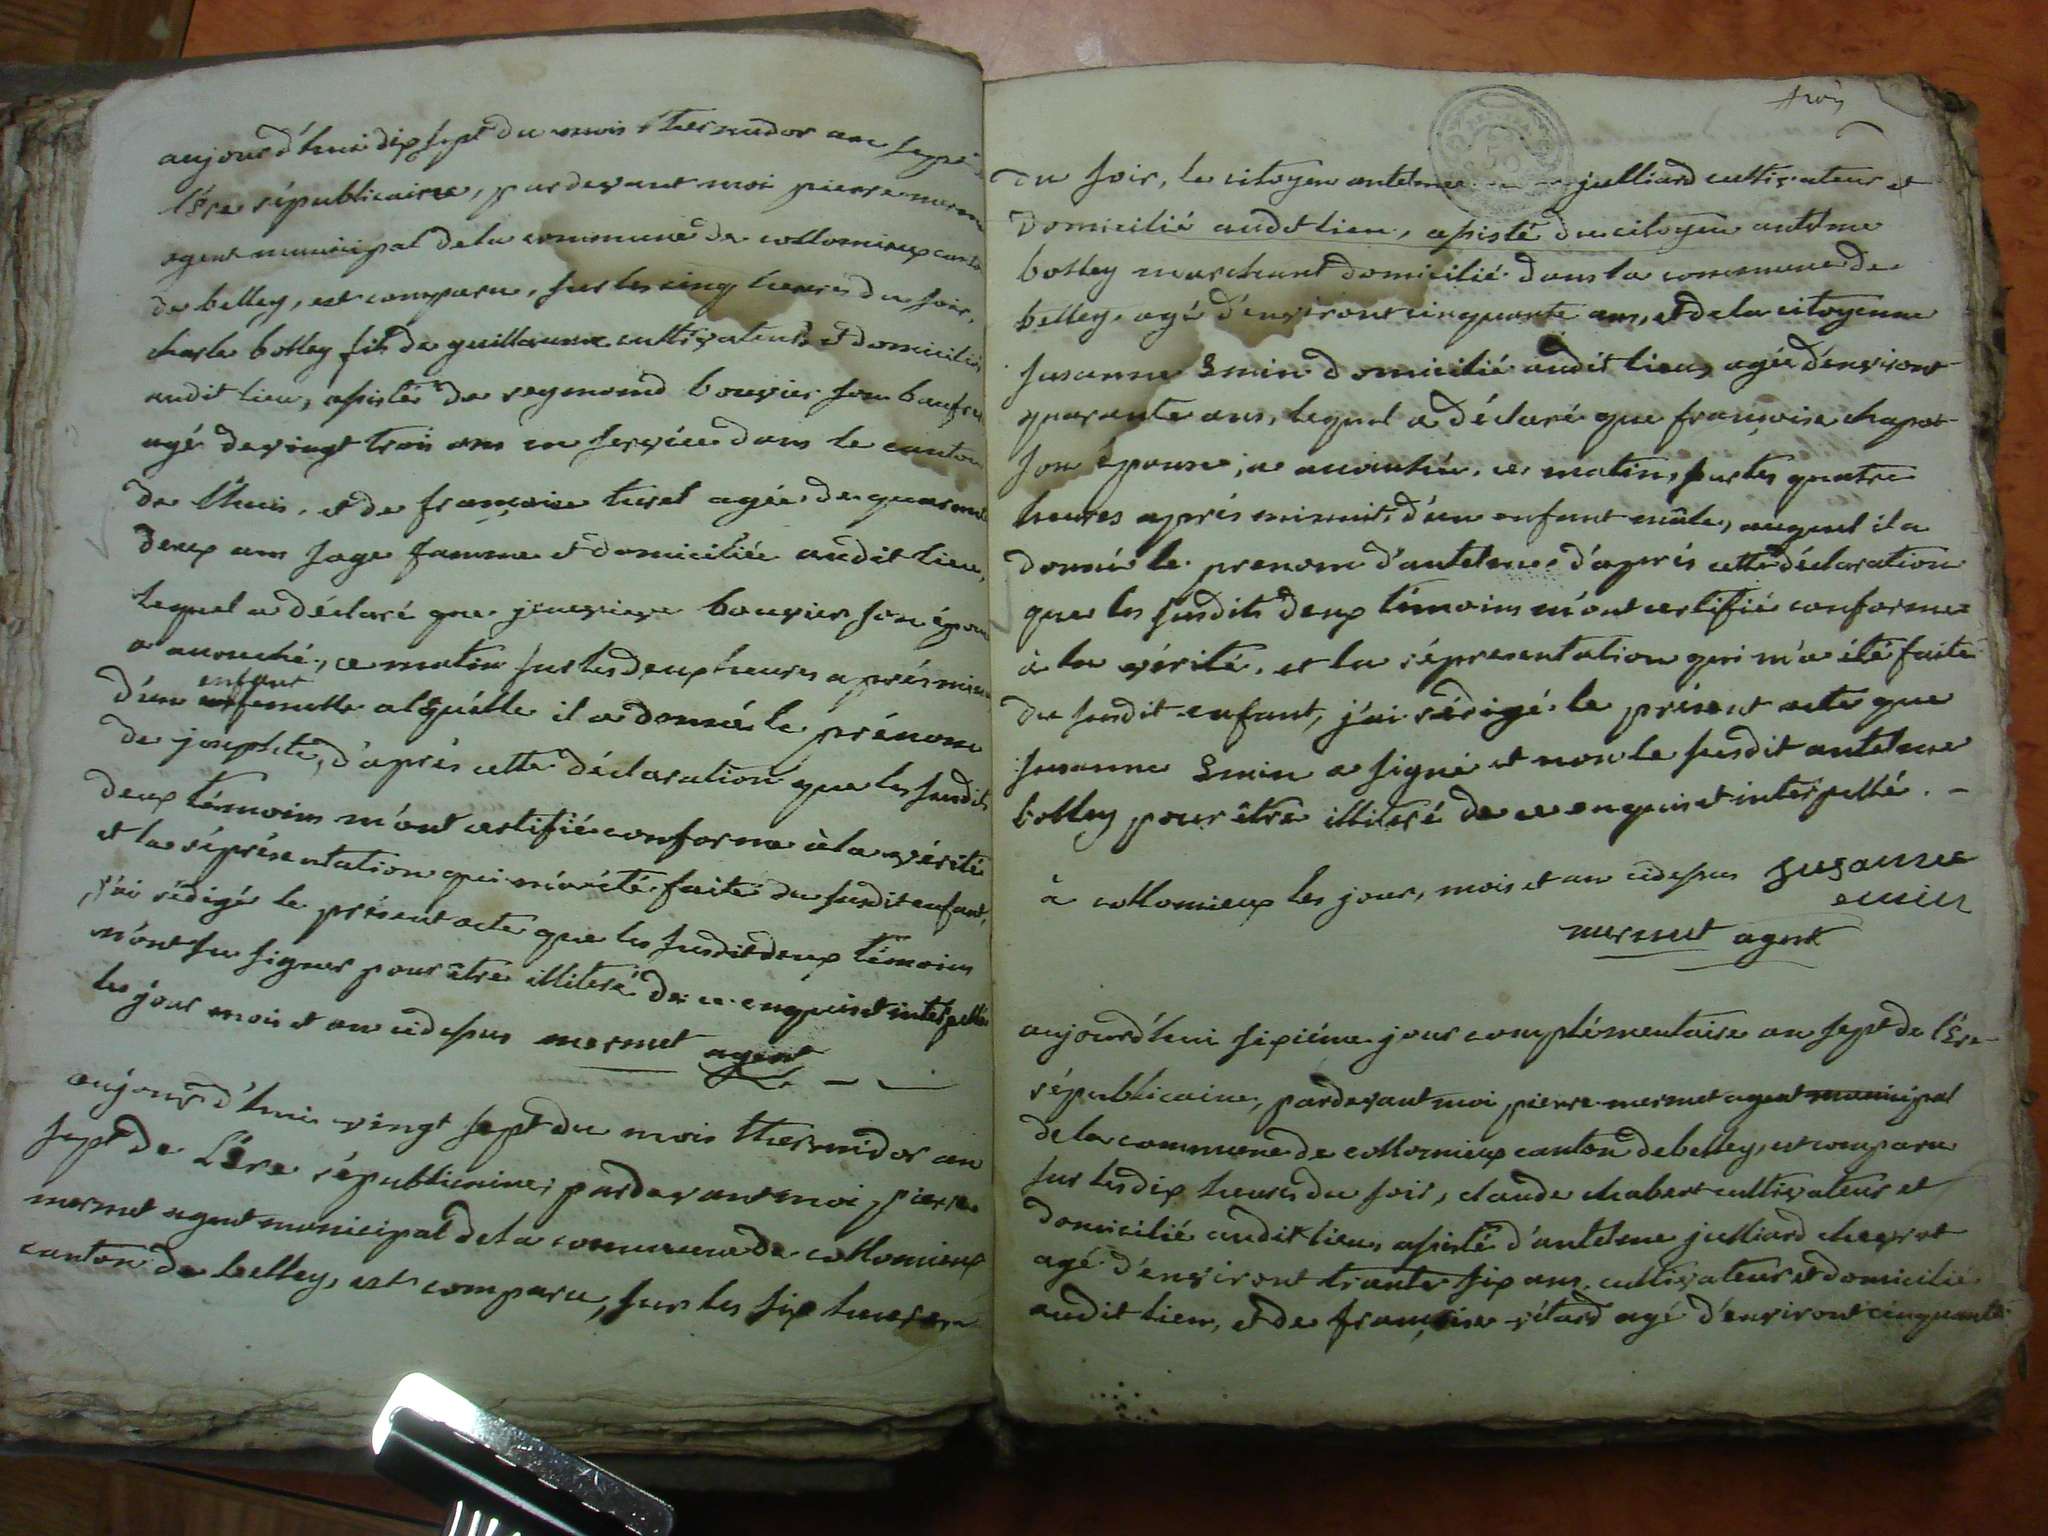 aujourd'hui dix sept du mois thermidor an sept de
l'ére républicaine, pardevant moi pierre mermet
agent municipal de la commune de collomieux canton
de belley, est comparu, sur les cinq heures du soir,
charle bolley fils de guillaume cultivateur et domicilié
audit lieu, assisté de reymond bouvier son baufrere
agé de vingt trois ans en service dans le canton
de l'huis, et de françoise turel agée de quarante
deux ans sage famme et domiciliée audit lieu,
lequel a déclaré que jenevieve bouvier son épouse
a acouché, ce matin sur les deux heures après minuit
d'un enfant femelle alquélle il a donné le prénom
de josephte, d'après cette déclaration que les susdits
deux témoins m'ont certifié conforme à la vérité
et la réprésentation qui m'a été faite du susdit enfant,
j'ai rédigé le présent acte que les susdit deux témoins
n'ont su signer pour être illiteré de ce enquis et interpellé
les jour mois et an cidessus mermet agent
aujourd'hui vingt sept du mois thermidor an
sept de l'ére républicaine, pardevant moi pierre
mermet agent municipal de la commune de collomieux
canton de belley, est comparu, sur les six heures
trois
du soir, le citoyen antelme julliard cultivateur et
domicilié audit lieu, assisté du citoyen antelme
bolley marchant domicilié dans la commune de
belley, agé d'environt cinquante ans, et de la citoyenne
susanne Emin domicilié audit lieu, agée d'environt
quarante ans, lequel a déclaré que françoise chapot
son épouse, a acouchée, ce matin, sur les quatre
heures aprés minuit, d'un enfant mâle, auquel il a
donné le prenom d'antelme, d'aprés cette déclaration
que les susdits deux témoins m'ont certifié conforme
à la vérité, et la réprésentation qui m'a été faite
du susdit enfant, j'ai rédigé le présent acte que
susanne Emin a signé et non le susdit antelme
bolley pour être illiteré de ce enquis et interpellé. -
à collomieux les jour, mois et an cidessus susanne
emin
mermet agent
aujourd'hui sixiéme jour complémentaire an sept de l'ére
républicaine, pardevant moi pierre mermet agent municipal
de la commune de collomieux canton de belley, est comparu
sur les dix heures du soir, claude chabert cultivateur et
domicilié audit lieu, assisté d'antelme julliard
agé d'environt trante six ans cultivateur et domicilié
audit lieu, et de françoise agé d'environt cinquante